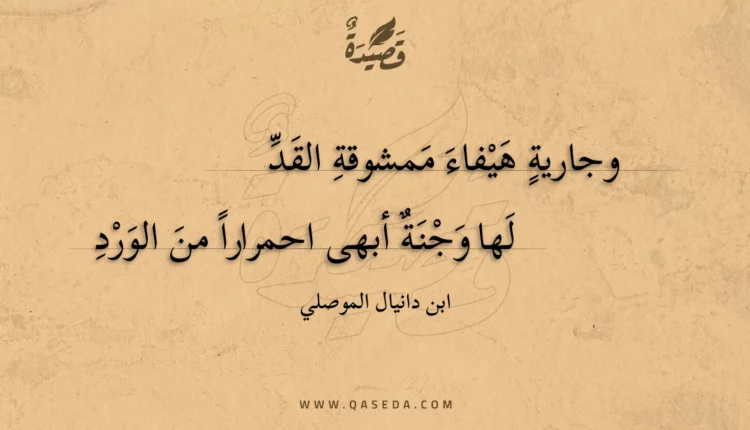 قَصِيْدَةٌ
وجاريةٍ هَيْفاءَ مَمشوقةِ القَدِّ
لَها وَجْنَةٌ أبهى احمراراً منَ الوَرْدِ
ابن دانيال الموصلي
WWW.QASEDA.COM